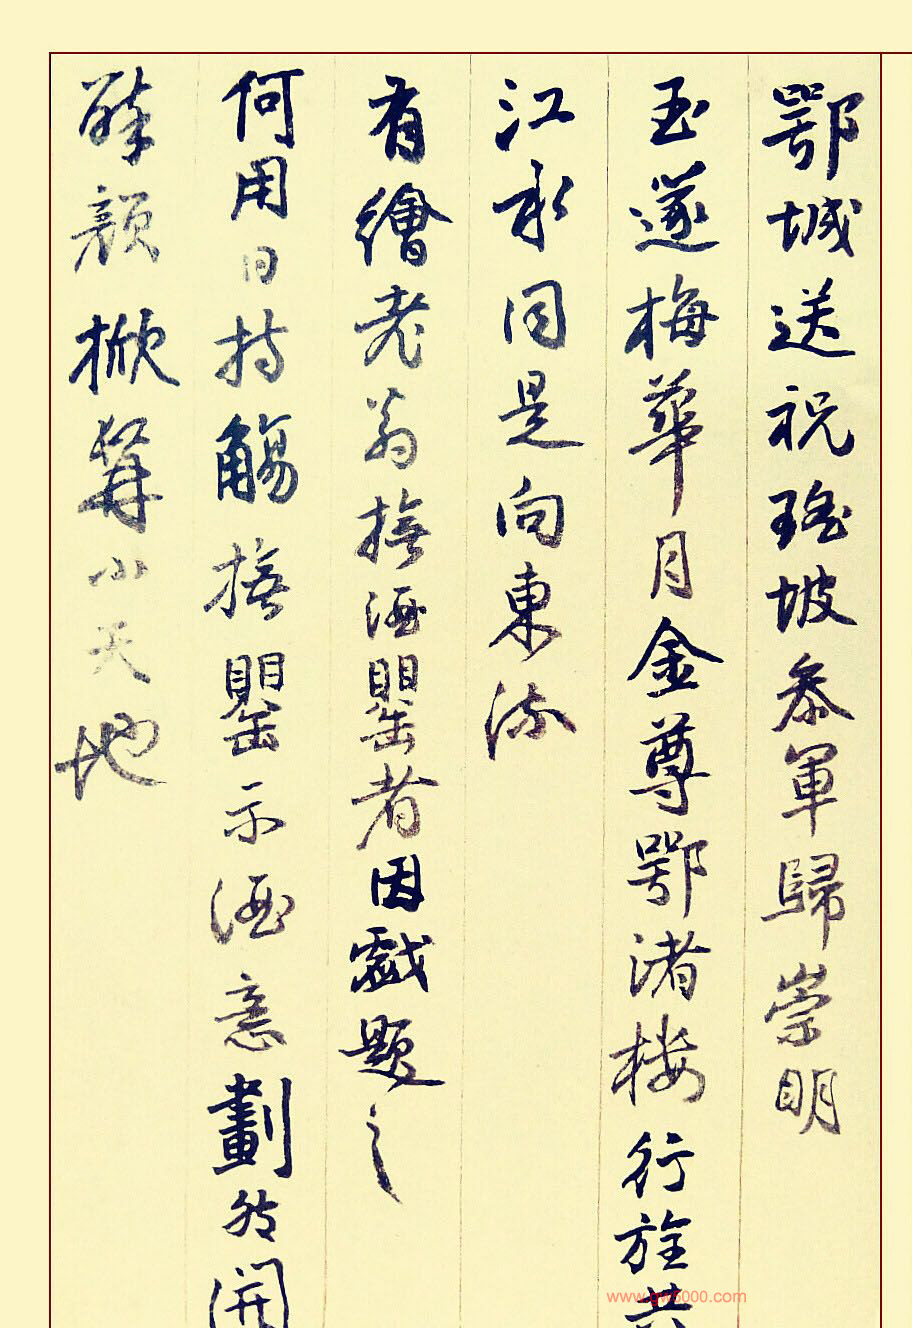 鄂城送祝瑤坡參軍歸崇明
玉邃梅華月金尊鄂渚樓行旌共
江水同是向東流
有繪老翁撫酒罌者因戲題之
何用日持觴撫罌示酒意劃然開
醉顏掀髯小天地
www.gw5000.com